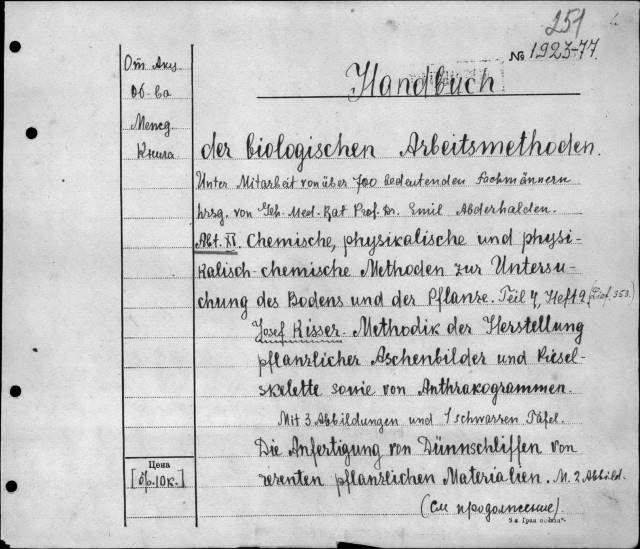 251
№ 1923-77.
Handbuch
От Акц.
Об-ва
Межд
Книга
der biologischen Arbeitsmethoden.
Unter Mitarbeit von über 700 bedeutenden Fachmännern
hrsg. von Geh. Med. Rat Prof. Dr. Emil Abderhalden.
Abt. XI. Chemische, physikalische und physi-
kalisch-chemische Methoden zur Untersu-
chung des Bodens und der Pflanze. Teil 4, Heft 2. (Lief. 353.)
Josef Kisser. Methodik der Herstellung
pflanzlicher Aschenbilder und Kiesel-
skelette sowie von Anthrakogrammen.
Mit 3 Abbildungen und 1 schwarzen Tafel.
Die Anfertigung von Dünnschliffen von
rezenten pflanzlichen Materialien. M. 2 Abbild.
Цена
[5р.10к.]
(см продолжение).